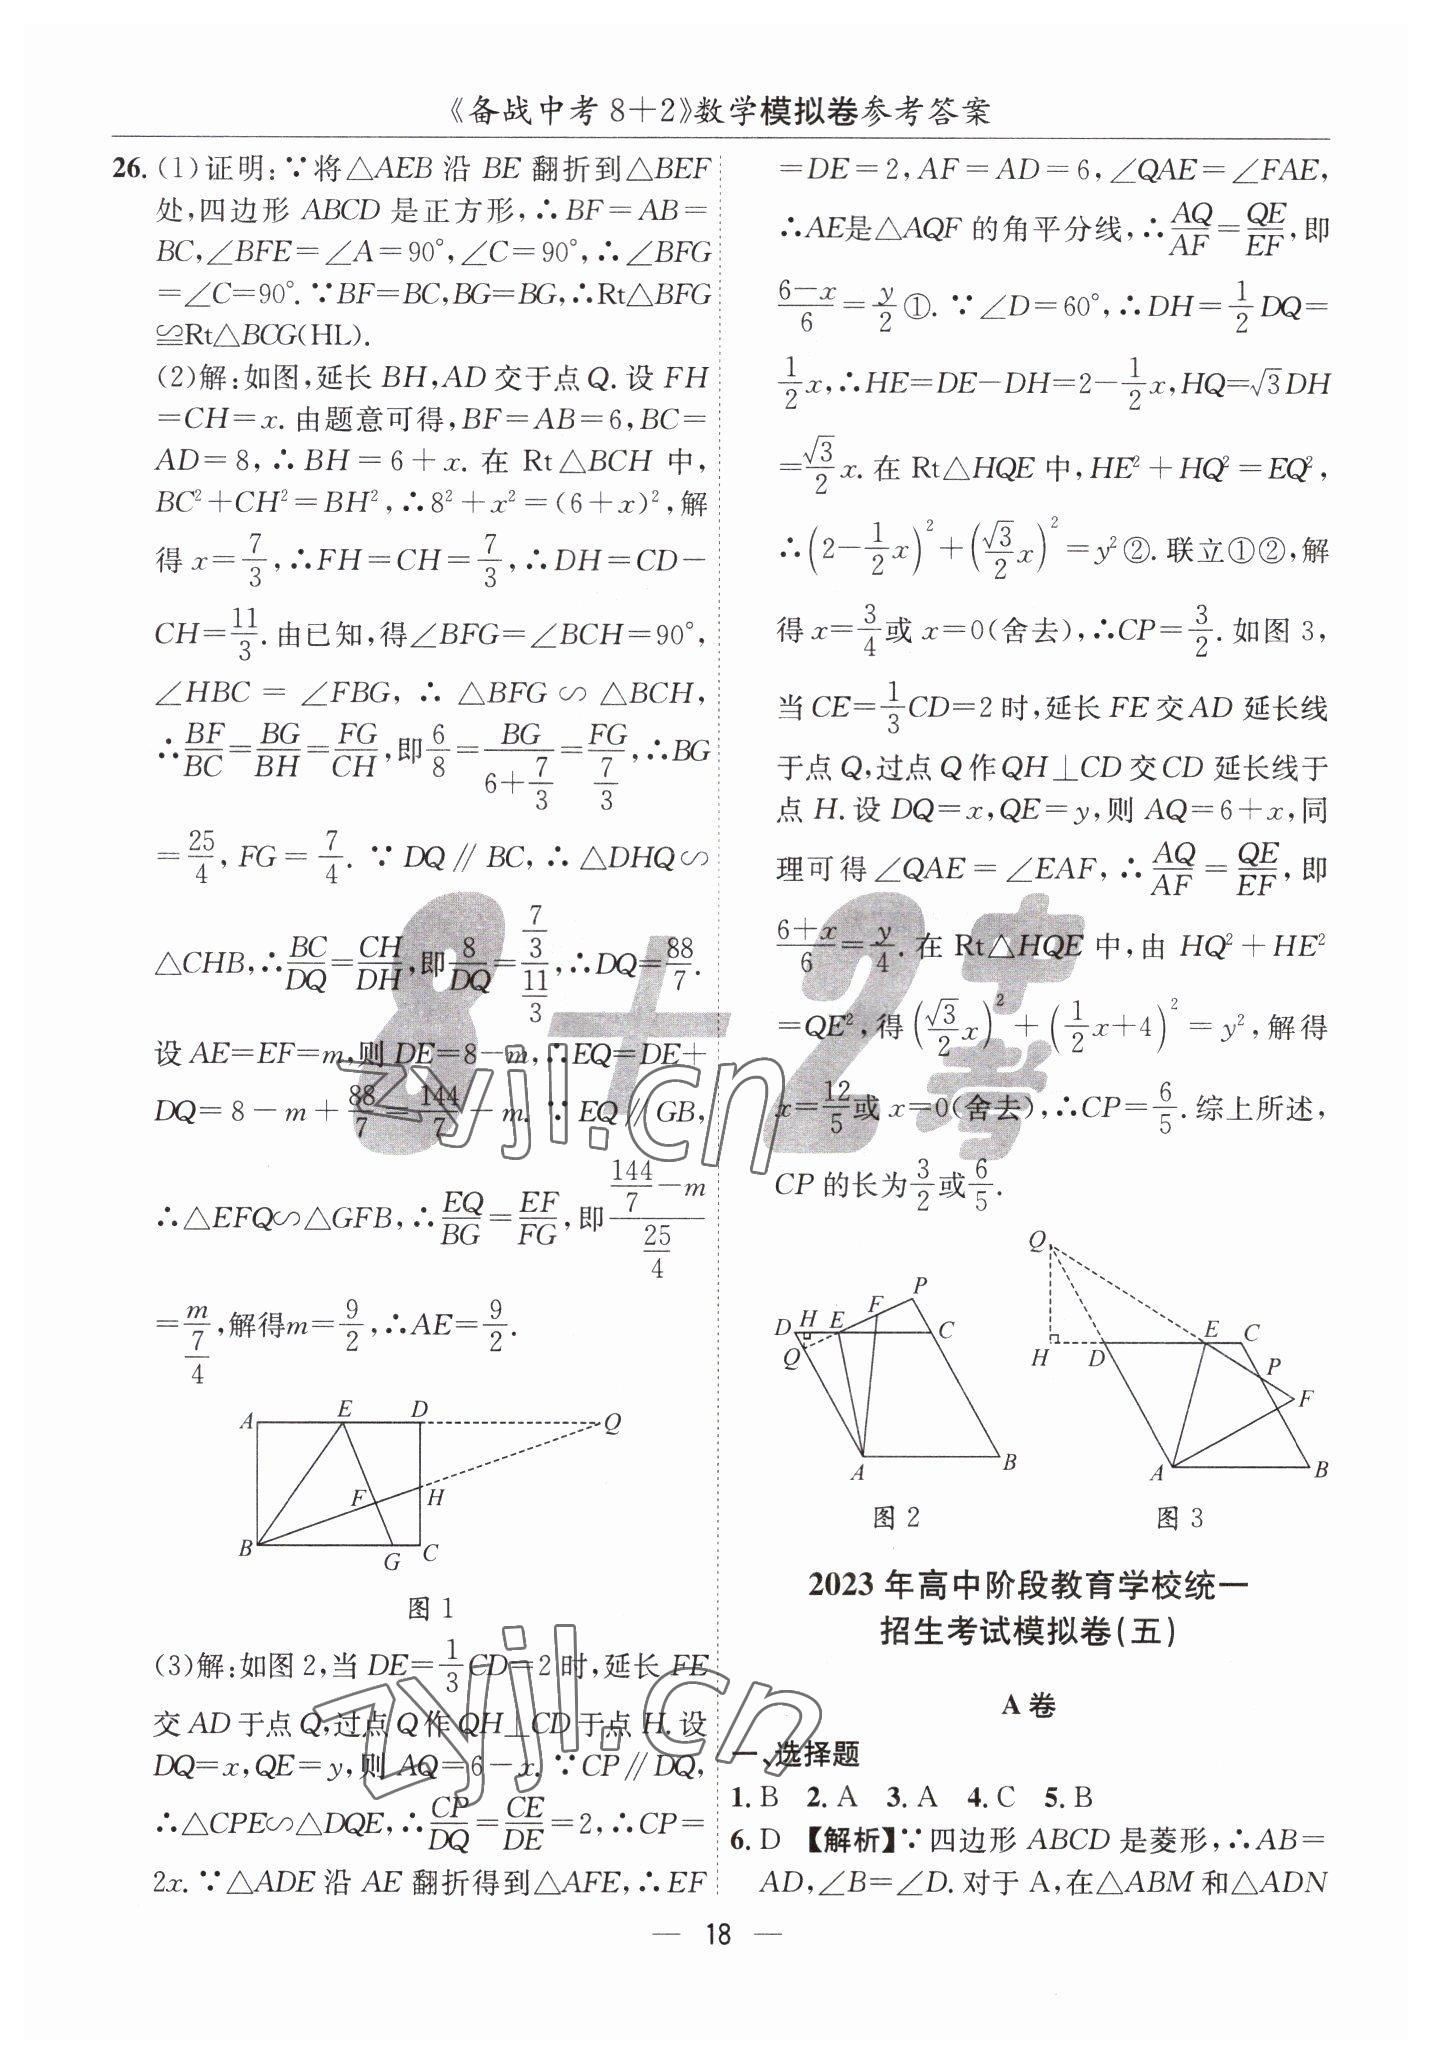 《备战中考8+2》数学模拟卷参考答案
26. (1)证明:∵将△AEB 沿 BE 翻折到△BEF
处,四边形 ABCD 是正方形,∴BF=AB=
BC,∠BFE=∠A=90°,∠C=90°,∴∠BFG
=∠C=90°.∵BF=BC,BG=BG,∴Rt△BFG
≌Rt△BCG(HL).
(2)解:如图,延长 BH,AD 交于点 Q. 设 FH
=CH=x. 由题意可得,BF=AB=6,BC=
AD=8,∴BH=6+x. 在 Rt△BCH 中,
BC²+CH²=BH²,∴8²+x²=(6+x)²,解
得 x=7/3,∴FH=CH=7/3,∴DH=CD-
CH=11/3.由已知,得∠BFG=∠BCH=90°,
∠HBC=∠FBG,∴△BFG∽△BCH,
∴BF/BC=BG/BH=FG/CH,即6/8=BG/(6+7/3)=FG/(7/3),∴BG
=25/4,FG=7/4.∵DQ∥BC,∴△DHQ∽
△CHB,∴BC/DQ=CH/DH,即8/DQ=(7/3)/(11/3),∴DQ=88/7.
设 AE=EF=m,则 DE=8-m,∴EQ=DE+
DQ=8-m+88/7=144/7-m.∵EQ∥GB,
∴△EFQ∽△GFB,∴EQ/BG=EF/FG,即(144/7-m)/(25/4)
=m/(7/4),解得m=9/2,∴AE=9/2.
A E D Q
F H
B G C
图 1
(3)解:如图 2,当 DE=1/3CD=2时,延长 FE
交 AD 于点 Q,过点 Q 作 QH⊥CD 于点 H.设
DQ=x,QE=y,则 AQ=6-x.∵CP∥DQ,
∴△CPE∽△DQE,∴CP/DQ=CE/DE=2,∴CP=
2x.∵△ADE 沿 AE 翻折得到△AFE,∴EF
=DE=2,AF=AD=6,∠QAE=∠FAE,
∴AE是△AQF 的角平分线,∴AQ/AF=QE/EF,即
(6-x)/6=y/2①.∵∠D=60°,∴DH=1/2DQ=
1/2x,∴HE=DE-DH=2-1/2x,HQ=√3DH
=√3/2x.在 Rt△HQE 中,HE²+HQ²=EQ²,
∴(2-1/2x)²+(√3/2x)²=y²②.联立①②,解
得 x=3/4或 x=0(舍去),∴CP=3/2.如图 3,
当CE=1/3CD=2 时,延长 FE 交 AD 延长线
于点 Q,过点 Q 作 QH⊥CD 交 CD 延长线于
点 H.设 DQ=x,QE=y,则 AQ=6+x,同
理可得∠QAE=∠EAF,∴AQ/AF=QE/EF,即
(6+x)/6=y/4.在 Rt△HQE 中,由 HQ²+HE²
=QE²,得(√3/2x)²+(1/2x+4)²=y²,解得
x=12/5或 x=0(舍去),∴CP=6/5.综上所述,
CP 的长为3/2或6/5.
D H E F P C
Q
A B
图 2
Q
H D E C
P F
A B
图 3
2023 年高中阶段教育学校统一
招生考试模拟卷(五)
A 卷
一、选择题
1. B 2. A 3. A 4. C 5. B
6. D 【解析】∵四边形 ABCD 是菱形,∴AB=
AD,∠B=∠D.对于 A,在△ABM 和△ADN
— 18 —
8+2中考
zyjl.cn
zyjl.cn